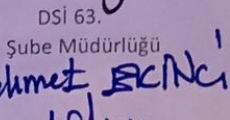 DSİ 63.
Şube Müdürlüğü
ehmet EKİNCİ